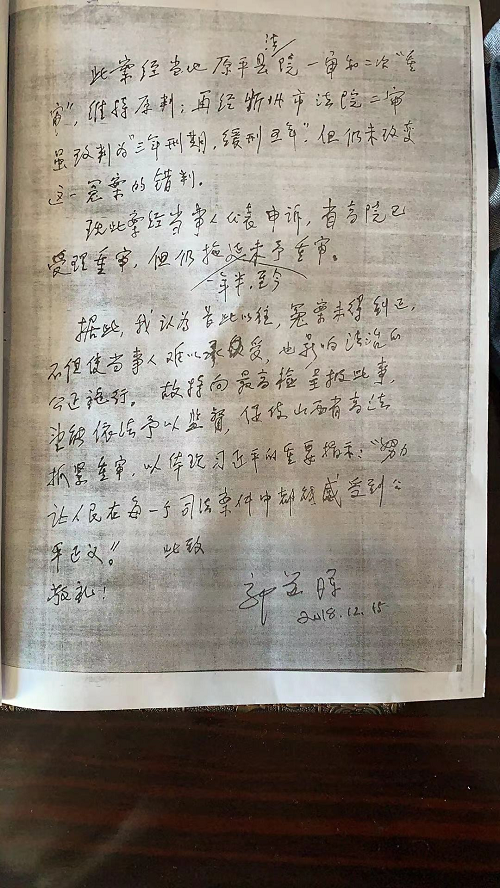 此案经当地原平县法院一审和二次“重
审”，维持原判；再经忻州市法院二审
虽改判为“三年刑期，缓刑五年”，但仍未改变
这一冤案的错判。
现此案经当事人代表申诉，省高院已
受理重审，但仍拖延一年半，至今未予重审。
据此，我认为长此以往，冤案未得纠正，
不但使当事人难以承受，也影响法治的
公正施行。故特向最高检呈报此事，
望能依法予以监督，促使山西省高法
抓紧重审，以体现习近平的重要指示：“努力
让人民在每一个司法案件中都能感受到公
平正义。” 此致
敬礼！
郭道晖
2018.12.15